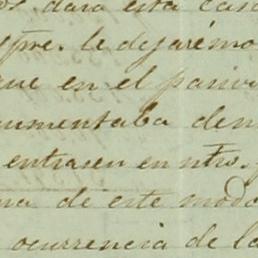 os. dara esta cas
spre. le dejarémo
que en el pariv
cumentaba den
entrasen en ntro.
ma de este modo
ocurrencia de la